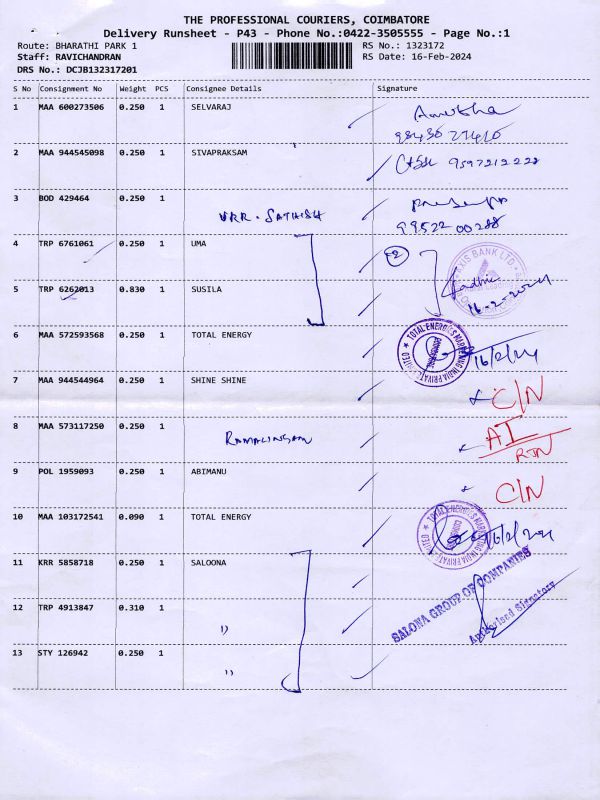 THE PROFESSIONAL COURIERS, COIMBATORE
Delivery Runsheet - P43 - Phone No.:0422-3505555 - Page No.:1
Route: BHARATHI PARK 1
Staff: RAVICHANDRAN
DRS No.: DCJB132317201
RS No.: 1323172
RS Date: 16-Feb-2024
S No Consignment No Weight PCS Consignee Details Signature
1 MAA 600273506 0.250 1 SELVARAJ
2 MAA 944545098 0.250 1 SIVAPRAKSAM 9597212228
3 BOD 429464 0.250 1
VRR. SATHISH 99522 00288
4 TRP 6761061 0.250 1 UMA
AXIS BANK LTD
5 TRP 6262013 0.830 1 SUSILA
16-2-2024
6 MAA 572593568 0.250 1 TOTAL ENERGY
TOTAL ENERGIES MARKETING INDIA PRIVATE LIMITED
16/2/24
7 MAA 944544964 0.250 1 SHINE SHINE C/N
8 MAA 573117250 0.250 1
RAMALINGAM AI
RTN
9 POL 1959093 0.250 1 ABIMANU C/N
10 MAA 103172541 0.090 1 TOTAL ENERGY
TOTAL ENERGIES MARKETING INDIA PRIVATE LIMITED
16/2/24
11 KRR 5858718 0.250 1 SALOONA
SALONA GROUP OF COMPANIES
Authorised Signatory
12 TRP 4913847 0.310 1
"
13 STY 126942 0.250 1
"